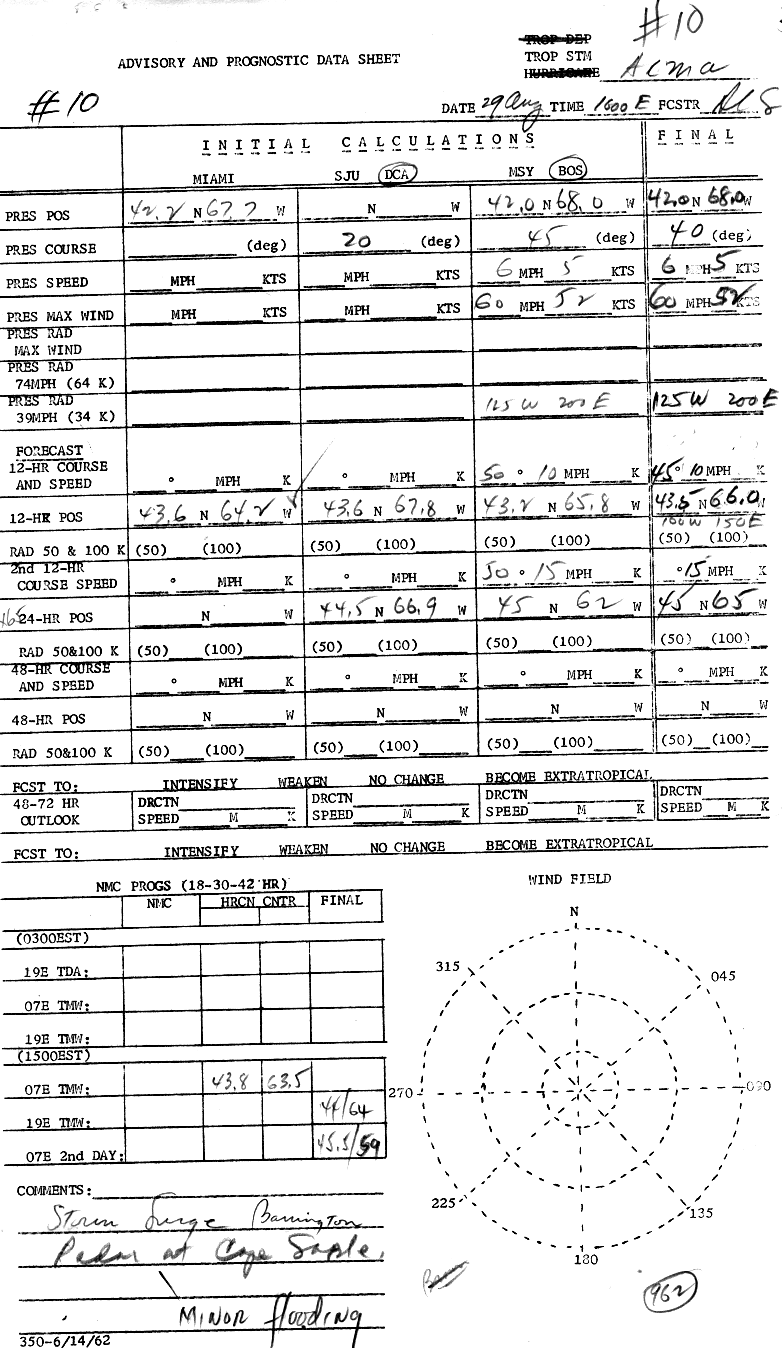 #10
TROP DEP
ADVISORY AND PROGNOSTIC DATA SHEET TROP STM
HURRICANE Alma
#10 DATE 29 Aug TIME 1600 E FCSTR
INITIAL CALCULATIONS FINAL
MIAMI SJU DCA MSY BOS
PRES POS 42.2 N 67.7 W N W 42.0 N 68.0 W 42.0 N 68.0 W
PRES COURSE (deg) 20 (deg) 45 (deg) 40 (deg)
PRES SPEED MPH KTS MPH KTS 6 MPH 5 KTS 6 MPH 5 KTS
PRES MAX WIND MPH KTS MPH KTS 60 MPH 52 KTS 60 MPH 52 KTS
PRES RAD
MAX WIND
PRES RAD
74MPH (64 K)
PRES RAD 125 W 200 E 125 W 200 E
39MPH (34 K)
FORECAST
12-HR COURSE
AND SPEED ° MPH K ° MPH K 50 ° 10 MPH K 45 ° 10 MPH K
12-HR POS 43.6 N 64.2 W 43.6 N 67.8 W 43.2 N 65.8 W 43.5 N 66.0 W
100W 150E
RAD 50 & 100 K (50) (100) (50) (100) (50) (100) (50) (100)
2nd 12-HR
COURSE SPEED ° MPH K ° MPH K 50 ° 15 MPH K ° 15 MPH K
24-HR POS N W 44.5 N 66.9 W 45 N 62 W 45 N 65 W
RAD 50&100 K (50) (100) (50) (100) (50) (100) (50) (100)
48-HR COURSE
AND SPEED ° MPH K ° MPH K ° MPH K ° MPH K
48-HR POS N W N W N W N W
RAD 50&100 K (50) (100) (50) (100) (50) (100) (50) (100)
FCST TO: INTENSIFY WEAKEN NO CHANGE BECOME EXTRATROPICAL
48-72 HR DRCTN DRCTN DRCTN DRCTN
OUTLOOK SPEED M K SPEED M K SPEED M K SPEED M K
FCST TO: INTENSIFY WEAKEN NO CHANGE BECOME EXTRATROPICAL
NMC PROGS (18-30-42 HR) WIND FIELD
NMC HRCN CNTR FINAL
N
(0300EST)
315 045
19E TDA:
07E TMW:
19E TMW:
(1500EST)
07E TMW: 43.8 63.5
270 090
19E TMW: 44/64
07E 2nd DAY: 45.5/59
COMMENTS:
225 135
Storm Surge Barrington
Radar at Cape Sable.
180
962
Minor flooding
350-6/14/62